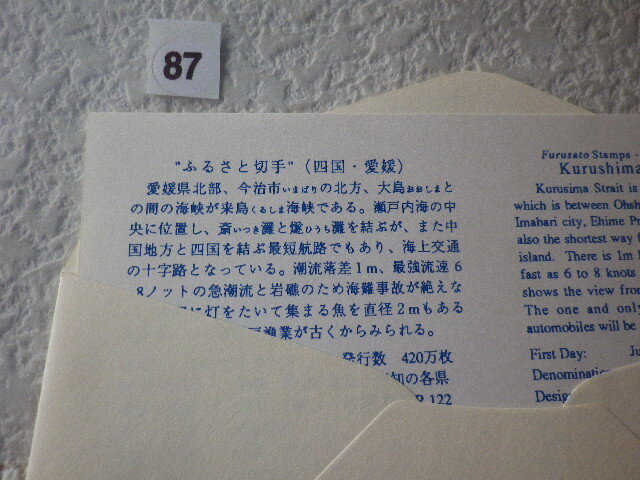 87
"ふるさと切手"(四国・愛媛)
愛媛県北部、今治市いまばりの北方、大島おおしまと
の間の海峡が来島くるしま海峡である。瀬戸内海の中
央に位置し、斎いつき灘と燧ひうち灘を結ぶが、また中
国地方と四国を結ぶ最短航路でもあり、海上交通
の十字路となっている。潮流落差1m、最強流速6
8ノットの急潮流と岩礁のため海難事故が絶えな
に灯をたいて集まる魚を直径2mもある
漁業が古くからみられる。
発行数 420万枚
知の各県
122
Furusato Stamps -
Kurushima
Kurusima Strait is
which is between Ohsh
Imabari city, Ehime Pr
also the shortest way f
island. There is 1m l
fast as 6 to 8 knots
shows the view from
The one and only
automobiles will be
First Day: Ju
Denomination
Desig